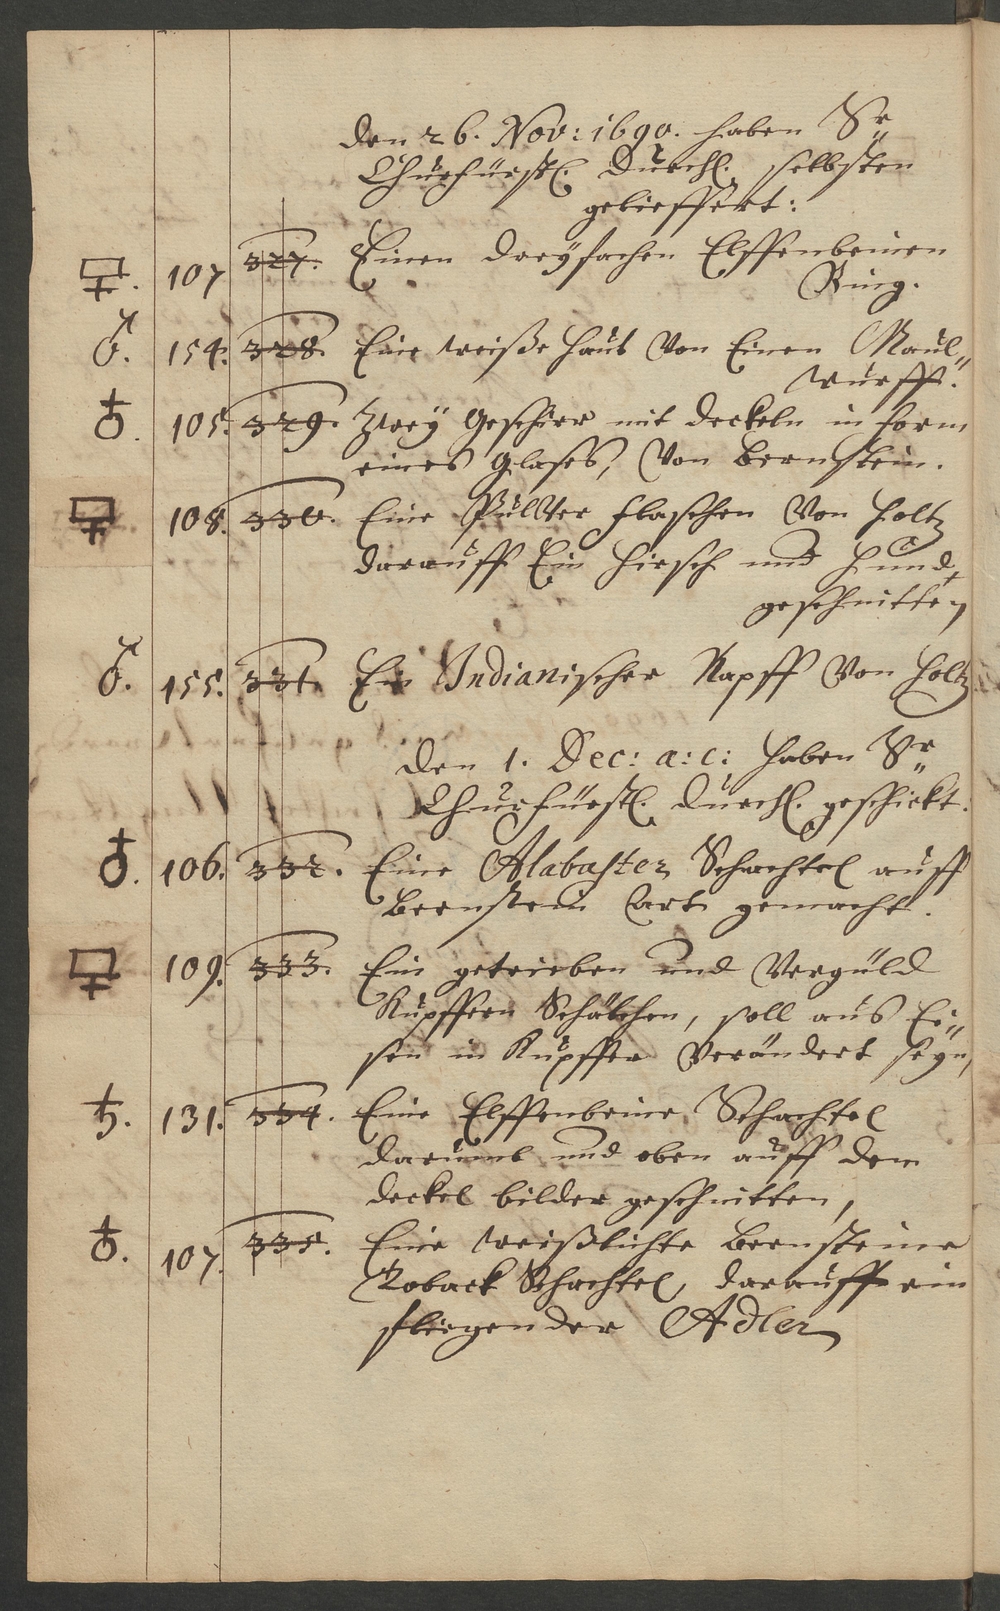 den 26. Nov: 1690. haben Sr.
Churfürstl. Durchl. selbsten
gelieffert:
107 327. Einen dreÿfachen Elffenbeinen
Ring.
♂. 154. 328. Eine weiße Haut Von Einen Maul=
wurff.
♁. 105. 329. Zweÿ Geschirr mit deckeln in form
eines Glases, Von Bernstein.
108. 330. Eine Pulver flaschen Von Holtz
darauff Ein Hirsch und Hund
geschnitten
♂. 155. 331. Ein Indianischer Napff Von Holtz
den 1. Dec: a: c: haben Sr.
Churfürstl. Durchl. geschickt.
♁. 106. 332. Eine Alabaster Schachtel auff
Bernstein Art gemacht.
109. 333. Ein getrieben und Vergüld
Kupffern Schälchen, soll aus Ei=
sen in Kupffer Verändert seÿn,
♄. 131. 334. Eine Elffenbeine Schachtel
darumb und oben auff dem
deckel bilder geschnitten,
♁. 107. 335. Eine weißlichte Bernsteine
Toback Schachtel, darauff ein
fliegender Adler